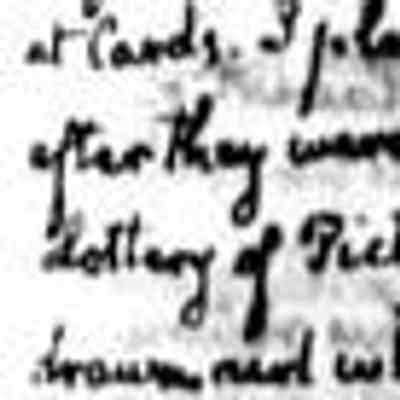 at Cards. I pla
after they were
Lottery of Pict
drawn, and wh